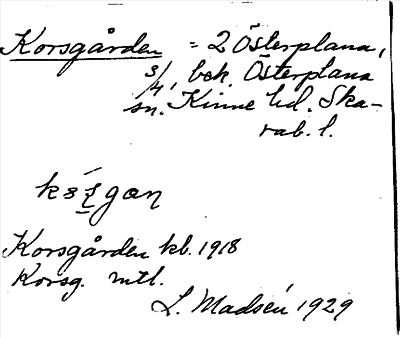 Korsgården = 2 Österplana,
3/4, bok. Österplana
sn. Kinne hd. Ska-
rab. l.
Korsgården kb. 1918
Korsg. mtl.
L. Madsén 1929